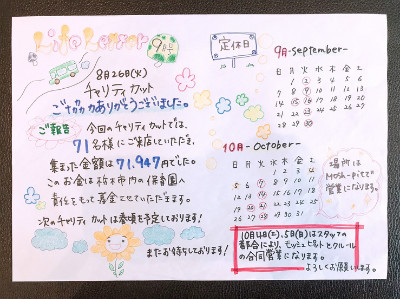 9月号
8月26日(火)
チャリティカット
ご協力ありがとうございました。
ご報告
今回のチャリティカットでは、
71名様にご来店いただき、
集まった金額は71,947円でした。
このお金は栃木市内の保育園へ
責任をもって募金させていただきます。
次のチャリティカットは春頃を予定しております!
またお待ちしております!
定休日
9月-September-
日 月 火 水 木 金 土
1 2 3 4 5 6
7 8 9 10 11 12 13
14 15 16 17 18 19 20
21 22 23 24 25 26 27
28 29 30
10月-October-
日 月 火 水 木 金 土
1 2 3 4
5 6 7 8 9 10 11
12 13 14 15 16 17 18
19 20 21 22 23 24 25
26 27 28 29 30 31
場所は
Mosh・pitで
営業になります。
10月4日(土)、5日(日)はスタッフの
都合により、モッシュピットとクルール
の合同営業になります。
よろしくお願いします。